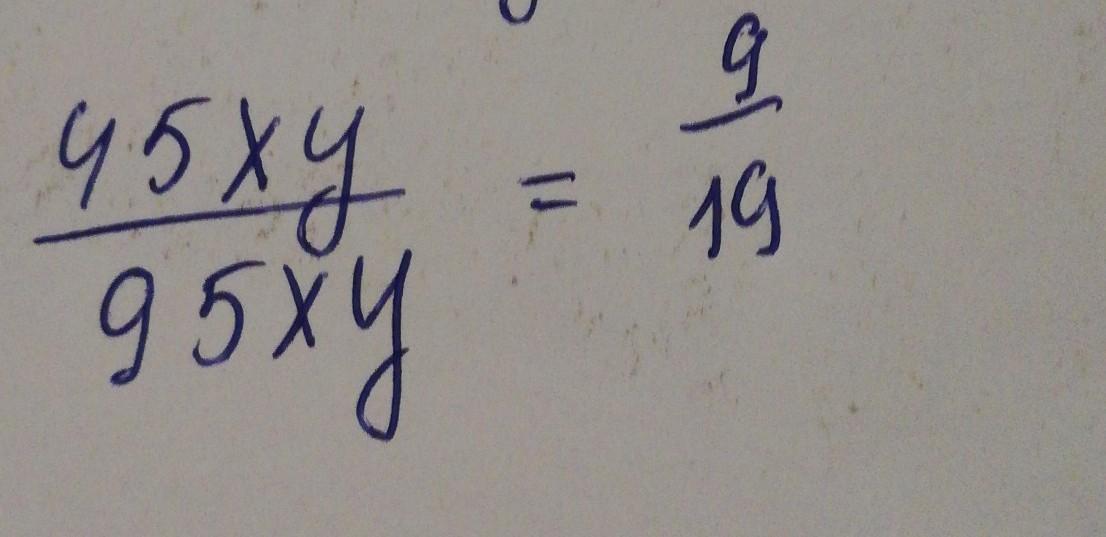 45xy/95xy = 9/19